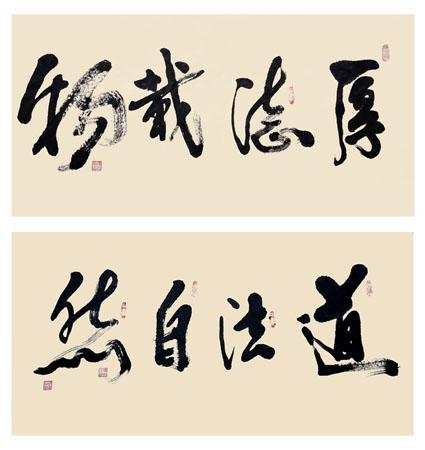 厚德载物
道法自然